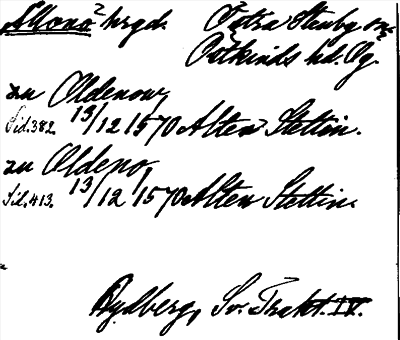 Allono² hrgd. Östra Stenby sn.
Östkinds hd. Ög.
zu Oldenow,
Sid. 382. 13/12 1570 Alten Stettin.
zu Oldeno,
Sid. 413. 13/12 1570 Alten Stettin.
Rydberg, Sv. Trakt. IV.